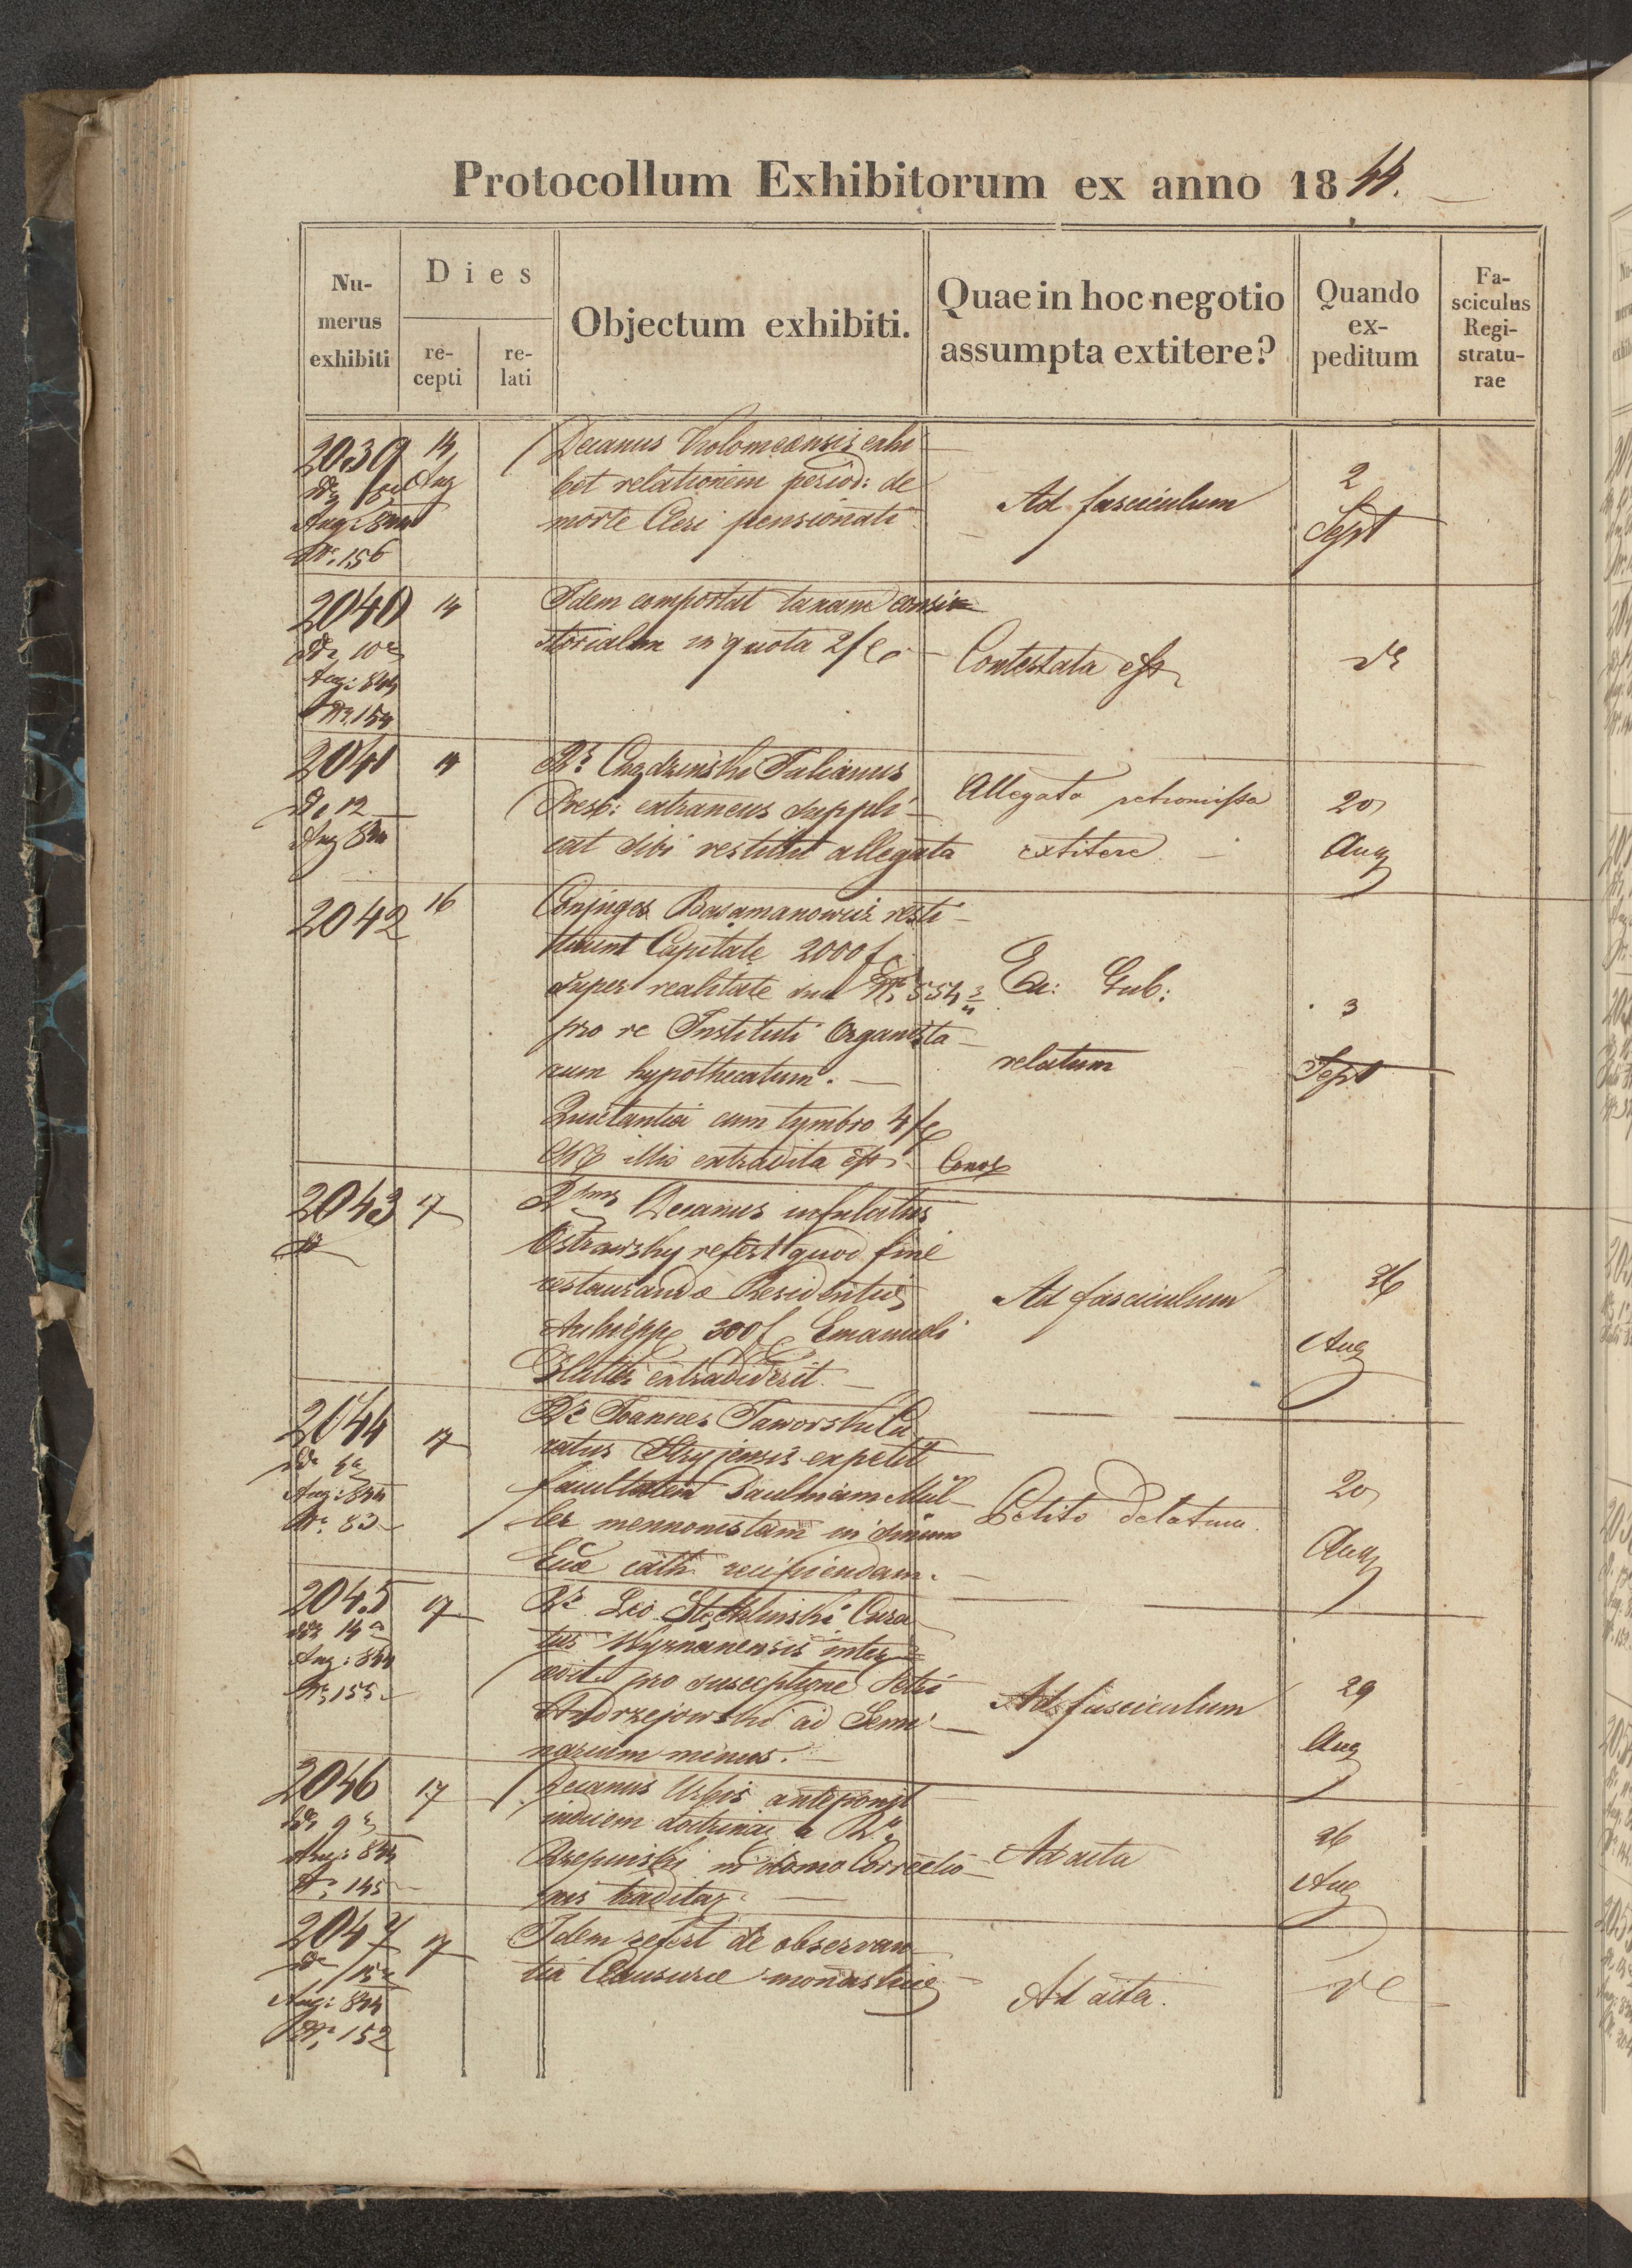 Protocollum Exhibitorum ex anno 1844.
Nu-
merus
exhibiti
Dies
re-
cepti
re-
lati
Objectum exhibiti.
Quae in hoc negotio
assumpta extitere?
Quando
ex-
peditum
Fa-
sciculus
Regi-
stratu-
rae
2039
14
Aug
Aug: 844
Nr. 156
Decanus Kolomeansis exhi-
bet relationem period: de
morte Cleri pensionati
Ad fasciculum
2
Sept
2040
14
dto 10a
Aug: 844
Nr. 154
Idem comportat taxam consi-
storialem in quota 2 f
Contestata est
2041
14
dto 12
Aug 844
Rs. Julianus
Presb: extraneus suppli-
cat sibi restitui allegata
Allegata retromissa
extitere.
20
Aug
2042
16
Conjuges Bogdanowicz resti-
tuunt Capitale 2000 f
super realitate sua Nr 554 3/4
pro re Instituti Organista-
rum hypothecatum.
Quietantia cum tymbro 4 f
illis extradita est.
Ex: Gub:
relatum
3
Sept
2043
17
Rdms Decanus infulatus
Ostrawsky refert quod fine
restaurandae Residentiae
Archieppe 300 f Emanueli
extradiderit.
Ad fasciculum
26
Aug
2044
17
Aug: 844
Nr. 83
Rs. Joannes Jaworski Cu-
ratus Stryjensis expetit
facultatem Paulinam Mül-
ler mennonistam in sinum
Eccae cath. recipiendam.
Petito delatum.
20
Aug
2045
17
dto 14a
Aug: 844
Nr. 155
Rs. Leo Cura-
tus Wyznanensis inter-
cedit pro susceptione Petri
Andrzejowski ad Semi-
narium minus.
Ad fasciculum
29
Aug
2046
17
dto 9a
Aug: 844
Nr. 145
Decanus Urbis anteponit
indicem doctrinae a Ro
Rzepinski in domo Correctio-
nis traditae.
Ad acta
26
Aug
2047
17
dto 13a
Aug: 844
Nr. 152
Idem refert de observan-
tia Clausurae monasticae
Ad acta.